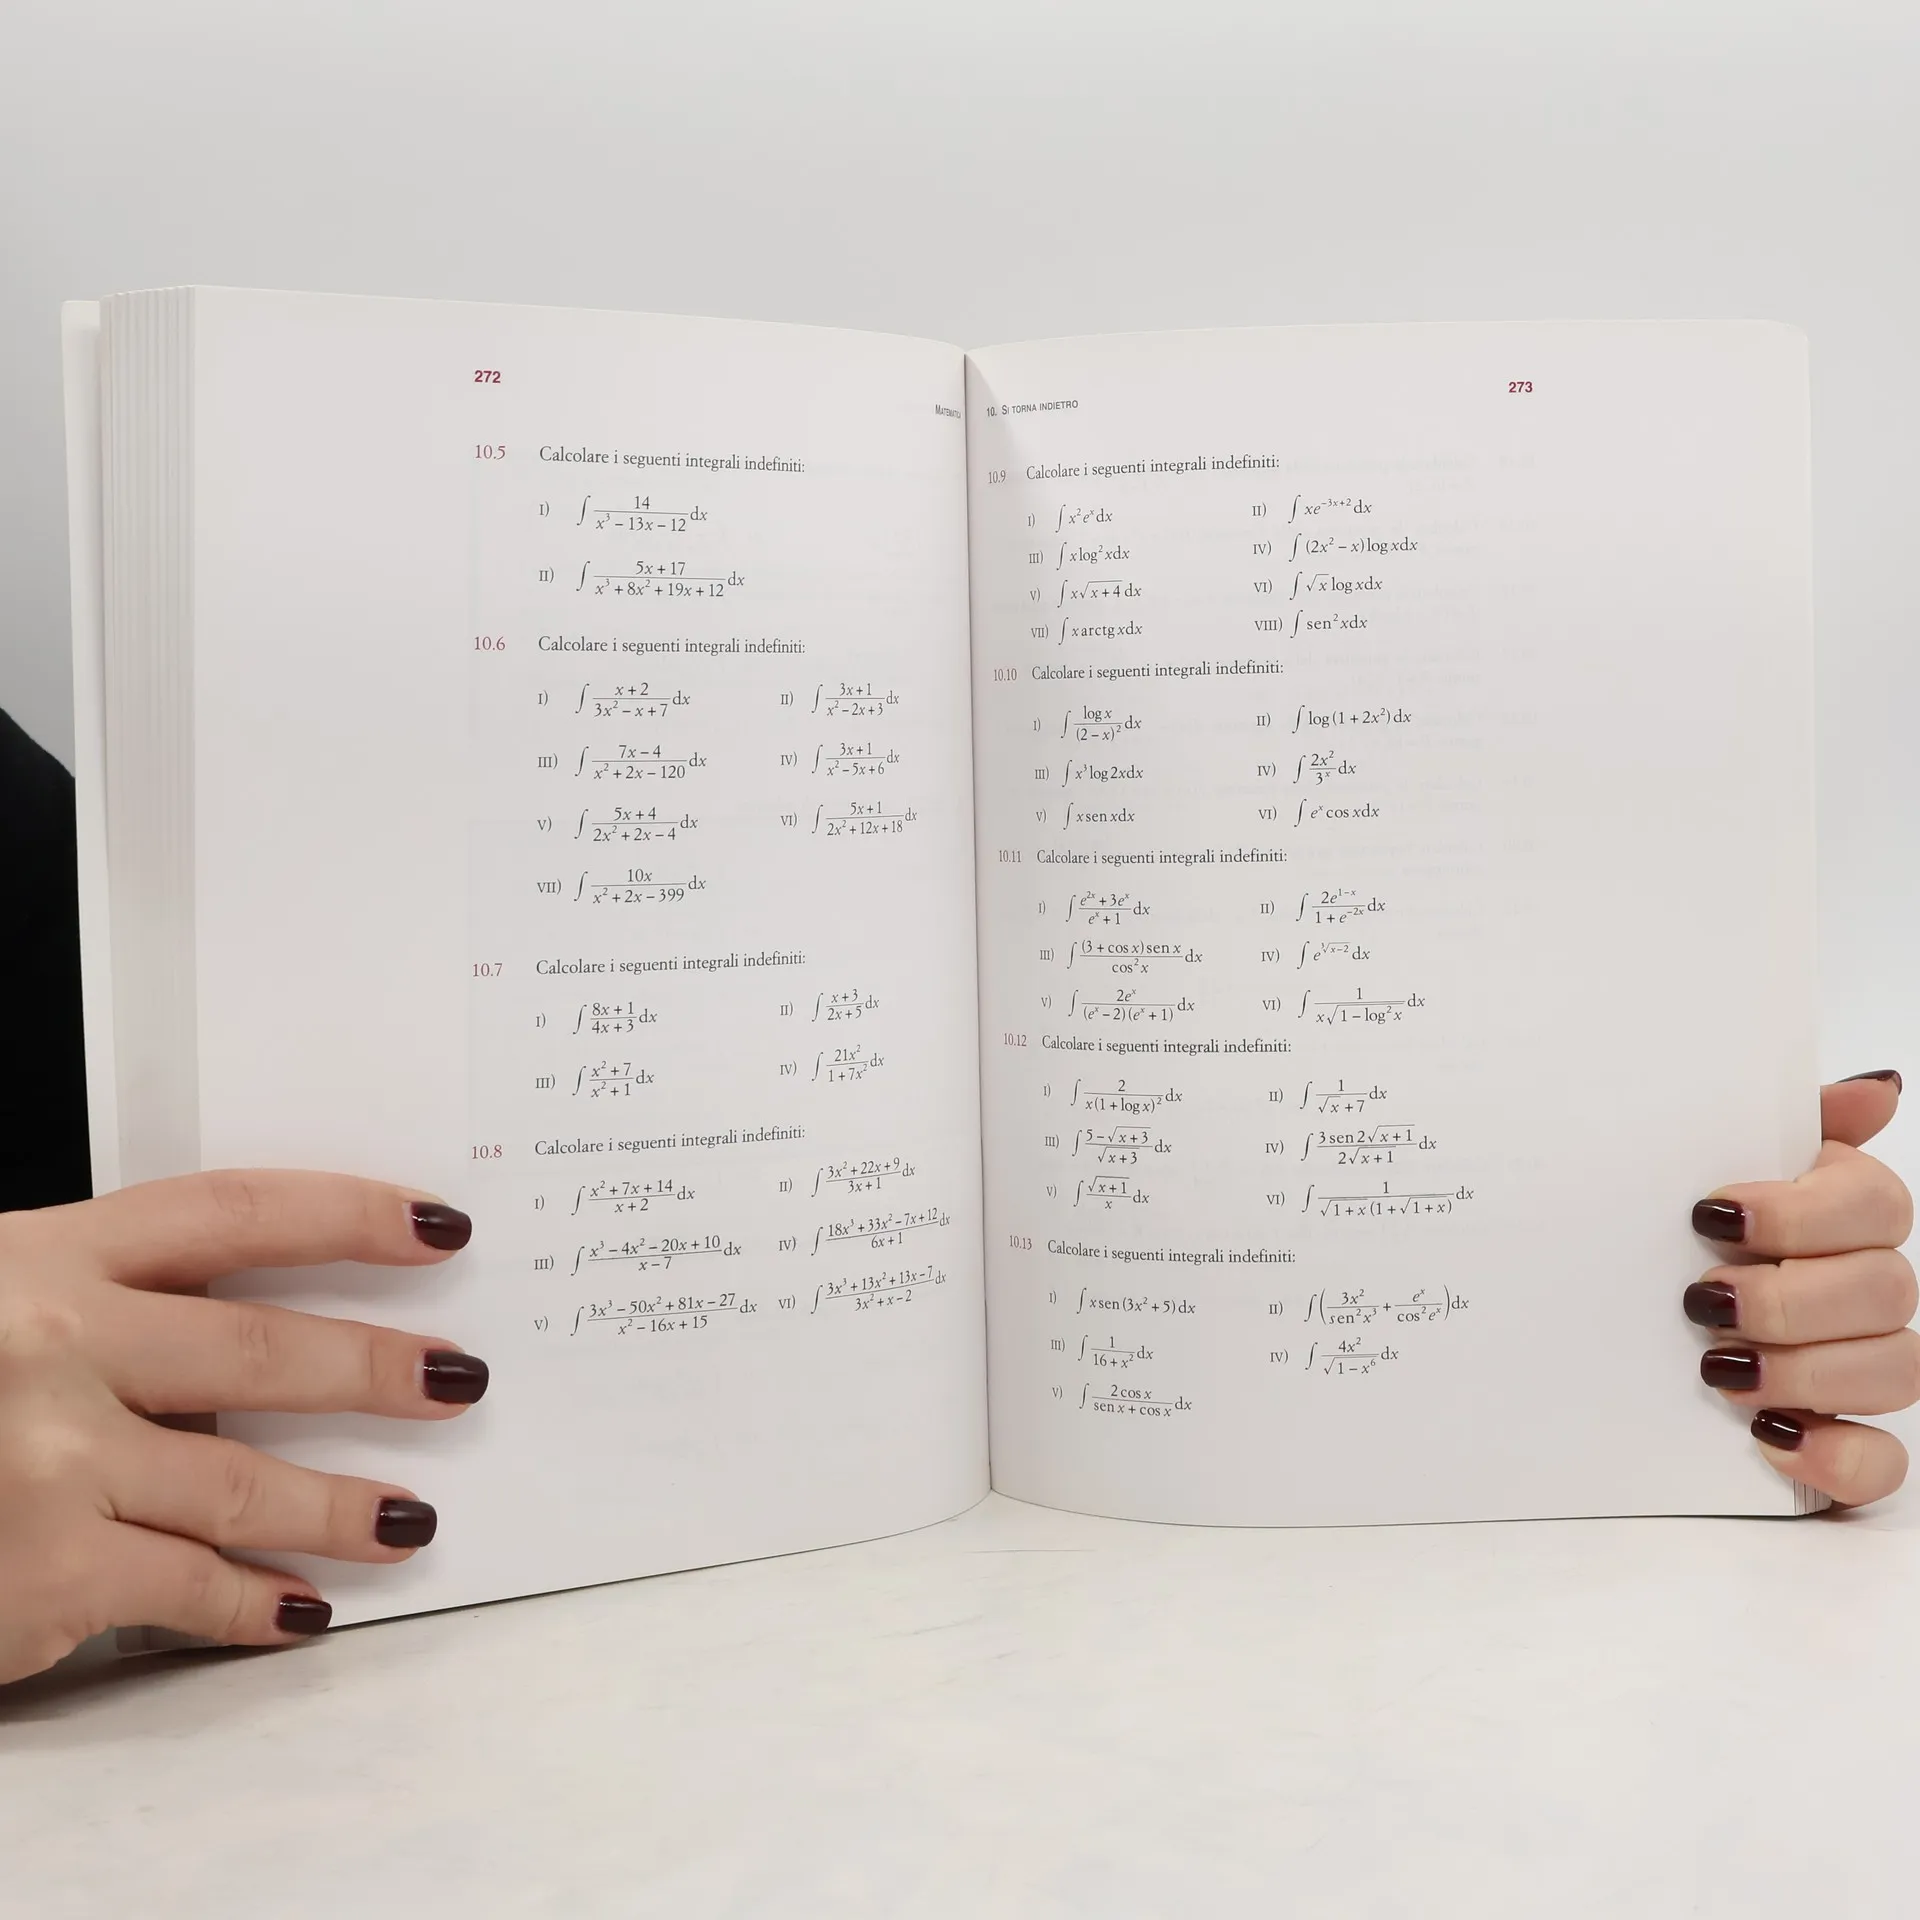 272
MATEMATICA
10.5 Calcolare i seguenti integrali indefiniti:
I) ∫ 14/(x³ – 13x – 12) dx
II) ∫ (5x + 17)/(x³ + 8x² + 19x + 12) dx
10.6 Calcolare i seguenti integrali indefiniti:
I) ∫ (x + 2)/(3x² – x + 7) dx II) ∫ (3x + 1)/(x² – 2x + 3) dx
III) ∫ (7x – 4)/(x² + 2x – 120) dx IV) ∫ (3x + 1)/(x² – 5x + 6) dx
V) ∫ (5x + 4)/(2x² + 2x – 4) dx VI) ∫ (5x + 1)/(2x² + 12x + 18) dx
VII) ∫ 10x/(x² + 2x – 399) dx
10.7 Calcolare i seguenti integrali indefiniti:
I) ∫ (8x + 1)/(4x + 3) dx II) ∫ (x + 3)/(2x + 5) dx
III) ∫ (x² + 7)/(x² + 1) dx IV) ∫ 21x²/(1 + 7x²) dx
10.8 Calcolare i seguenti integrali indefiniti:
I) ∫ (x² + 7x + 14)/(x + 2) dx II) ∫ (3x² + 22x + 9)/(3x + 1) dx
III) ∫ (x³ – 4x² – 20x + 10)/(x – 7) dx IV) ∫ (18x³ + 33x² – 7x + 12)/(6x + 1) dx
V) ∫ (3x³ – 50x² + 81x – 27)/(x² – 16x + 15) dx VI) ∫ (3x³ + 13x² + 13x – 7)/(3x² + x – 2) dx
10. SI TORNA INDIETRO
273
10.9 Calcolare i seguenti integrali indefiniti:
I) ∫ x²eˣdx II) ∫ xe^(–3x+2)dx
III) ∫ x log² xdx IV) ∫ (2x² – x) log xdx
V) ∫ x√(x + 4) dx VI) ∫ √x log xdx
VII) ∫ x arctg xdx VIII) ∫ sen² xdx
10.10 Calcolare i seguenti integrali indefiniti:
I) ∫ log x/(2 – x)² dx II) ∫ log (1 + 2x²) dx
III) ∫ x³ log 2xdx IV) ∫ 2x²/3ˣ dx
V) ∫ x sen xdx VI) ∫ eˣ cos xdx
10.11 Calcolare i seguenti integrali indefiniti:
I) ∫ (e²ˣ + 3eˣ)/(eˣ + 1) dx II) ∫ 2e^(1–x)/(1 + e^(–2x)) dx
III) ∫ (3 + cos x) sen x/cos² x dx IV) ∫ e^(∛(x–2)) dx
V) ∫ 2eˣ/((eˣ – 2)(eˣ + 1)) dx VI) ∫ 1/(x√(1 – log² x)) dx
10.12 Calcolare i seguenti integrali indefiniti:
I) ∫ 2/(x(1 + log x)²) dx II) ∫ 1/(√x + 7) dx
III) ∫ (5 – √(x + 3))/√(x + 3) dx IV) ∫ 3 sen 2√(x + 1)/(2√(x + 1)) dx
V) ∫ √(x + 1)/x dx VI) ∫ 1/(√(1 + x) (1 + √(1 + x))) dx
10.13 Calcolare i seguenti integrali indefiniti:
I) ∫ x sen (3x² + 5) dx II) ∫ (3x²/sen² x³ + eˣ/cos² eˣ) dx
III) ∫ 1/(16 + x²) dx IV) ∫ 4x²/√(1 – x⁶) dx
V) ∫ 2 cos x/(sen x + cos x) dx